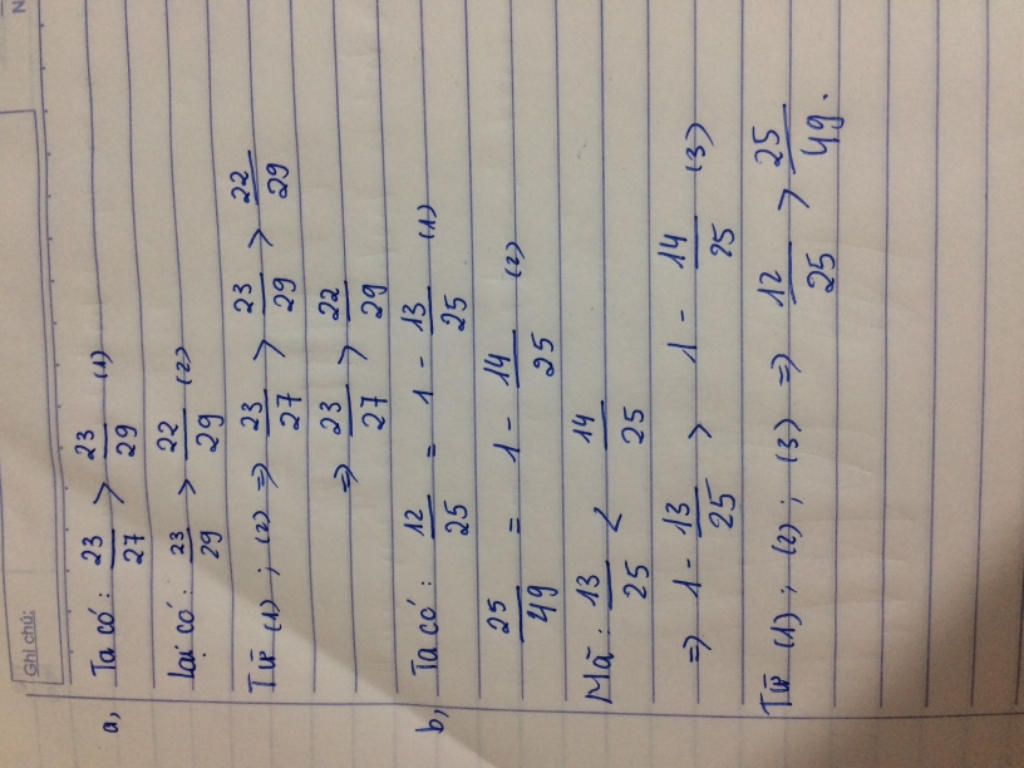 Ghi chú:
N
a, Ta có: 23/27 > 23/29 (1)
Lại có: 23/29 > 22/29 (2)
Từ (1); (2) => 23/27 > 23/29 > 22/29
=> 23/27 > 22/29
b, Ta có: 12/25 = 1 - 13/25 (1)
25/49 = 1 - 14/25 (2)
Mã: 13/25 < 14/25
=> 1 - 13/25 > 1 - 14/25 (3)
Từ (1); (2); (3) => 12/25 > 25/49.